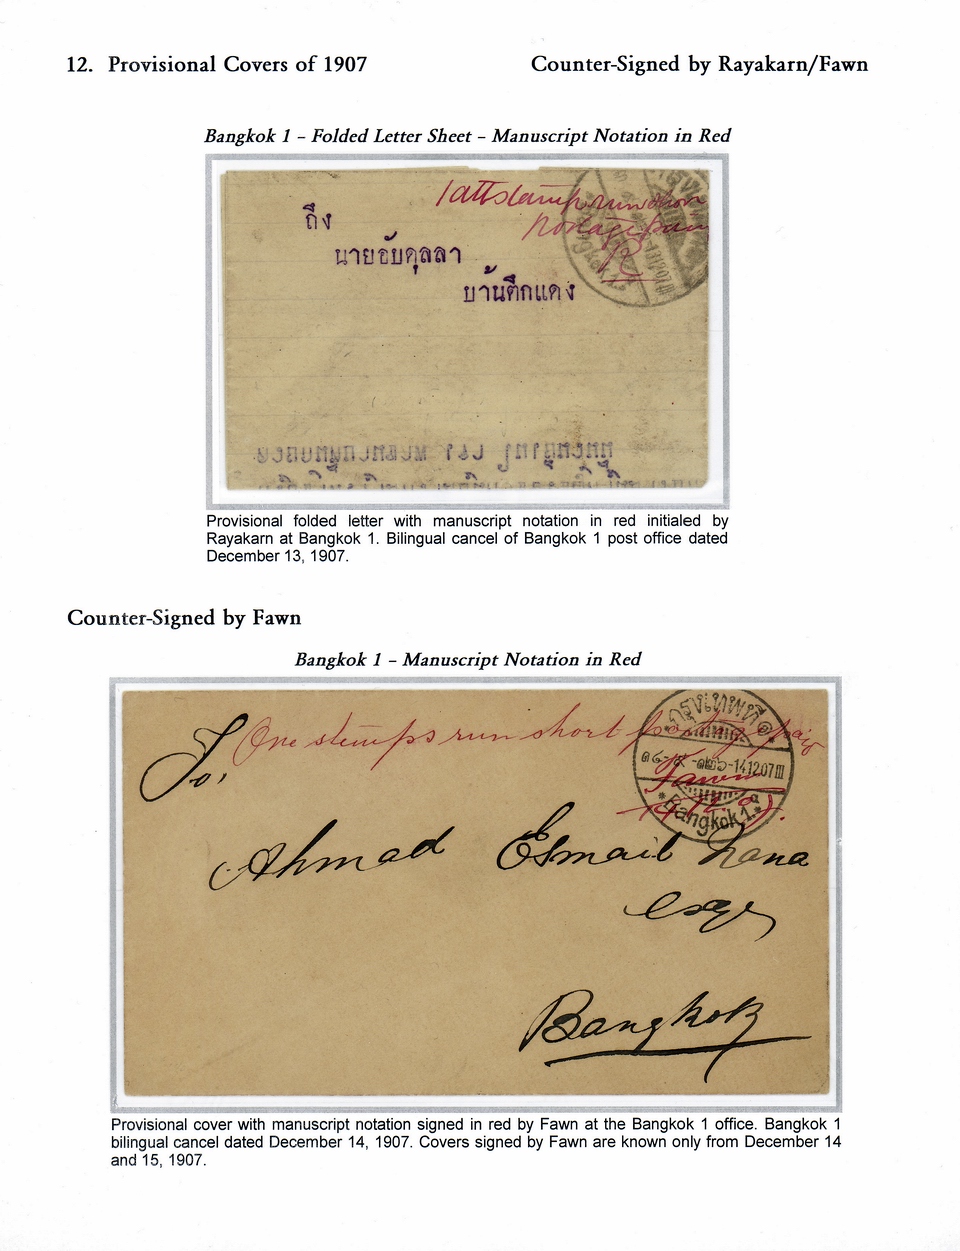 12. Provisional Covers of 1907
Counter-Signed by Rayakarn/Fawn
Bangkok 1 – Folded Letter Sheet – Manuscript Notation in Red
1 att stamp run short
postage paid
R
ถึง
นายอับดุลลา
บ้านตึกแดง
Bangkok 1.
Provisional folded letter with manuscript notation in red initialed by
Rayakarn at Bangkok 1. Bilingual cancel of Bangkok 1 post office dated
December 13, 1907.
Counter-Signed by Fawn
Bangkok 1 – Manuscript Notation in Red
To,
One stamps run short postage paid
Fawn
กรุงเทพที่ ๑
๑๔-๙-๑๒๖-14.12.07 III
Bangkok 1.
Ahmad Esmail Nana
esqr
Bangkok
Provisional cover with manuscript notation signed in red by Fawn at the Bangkok 1 office. Bangkok 1
bilingual cancel dated December 14, 1907. Covers signed by Fawn are known only from December 14
and 15, 1907.